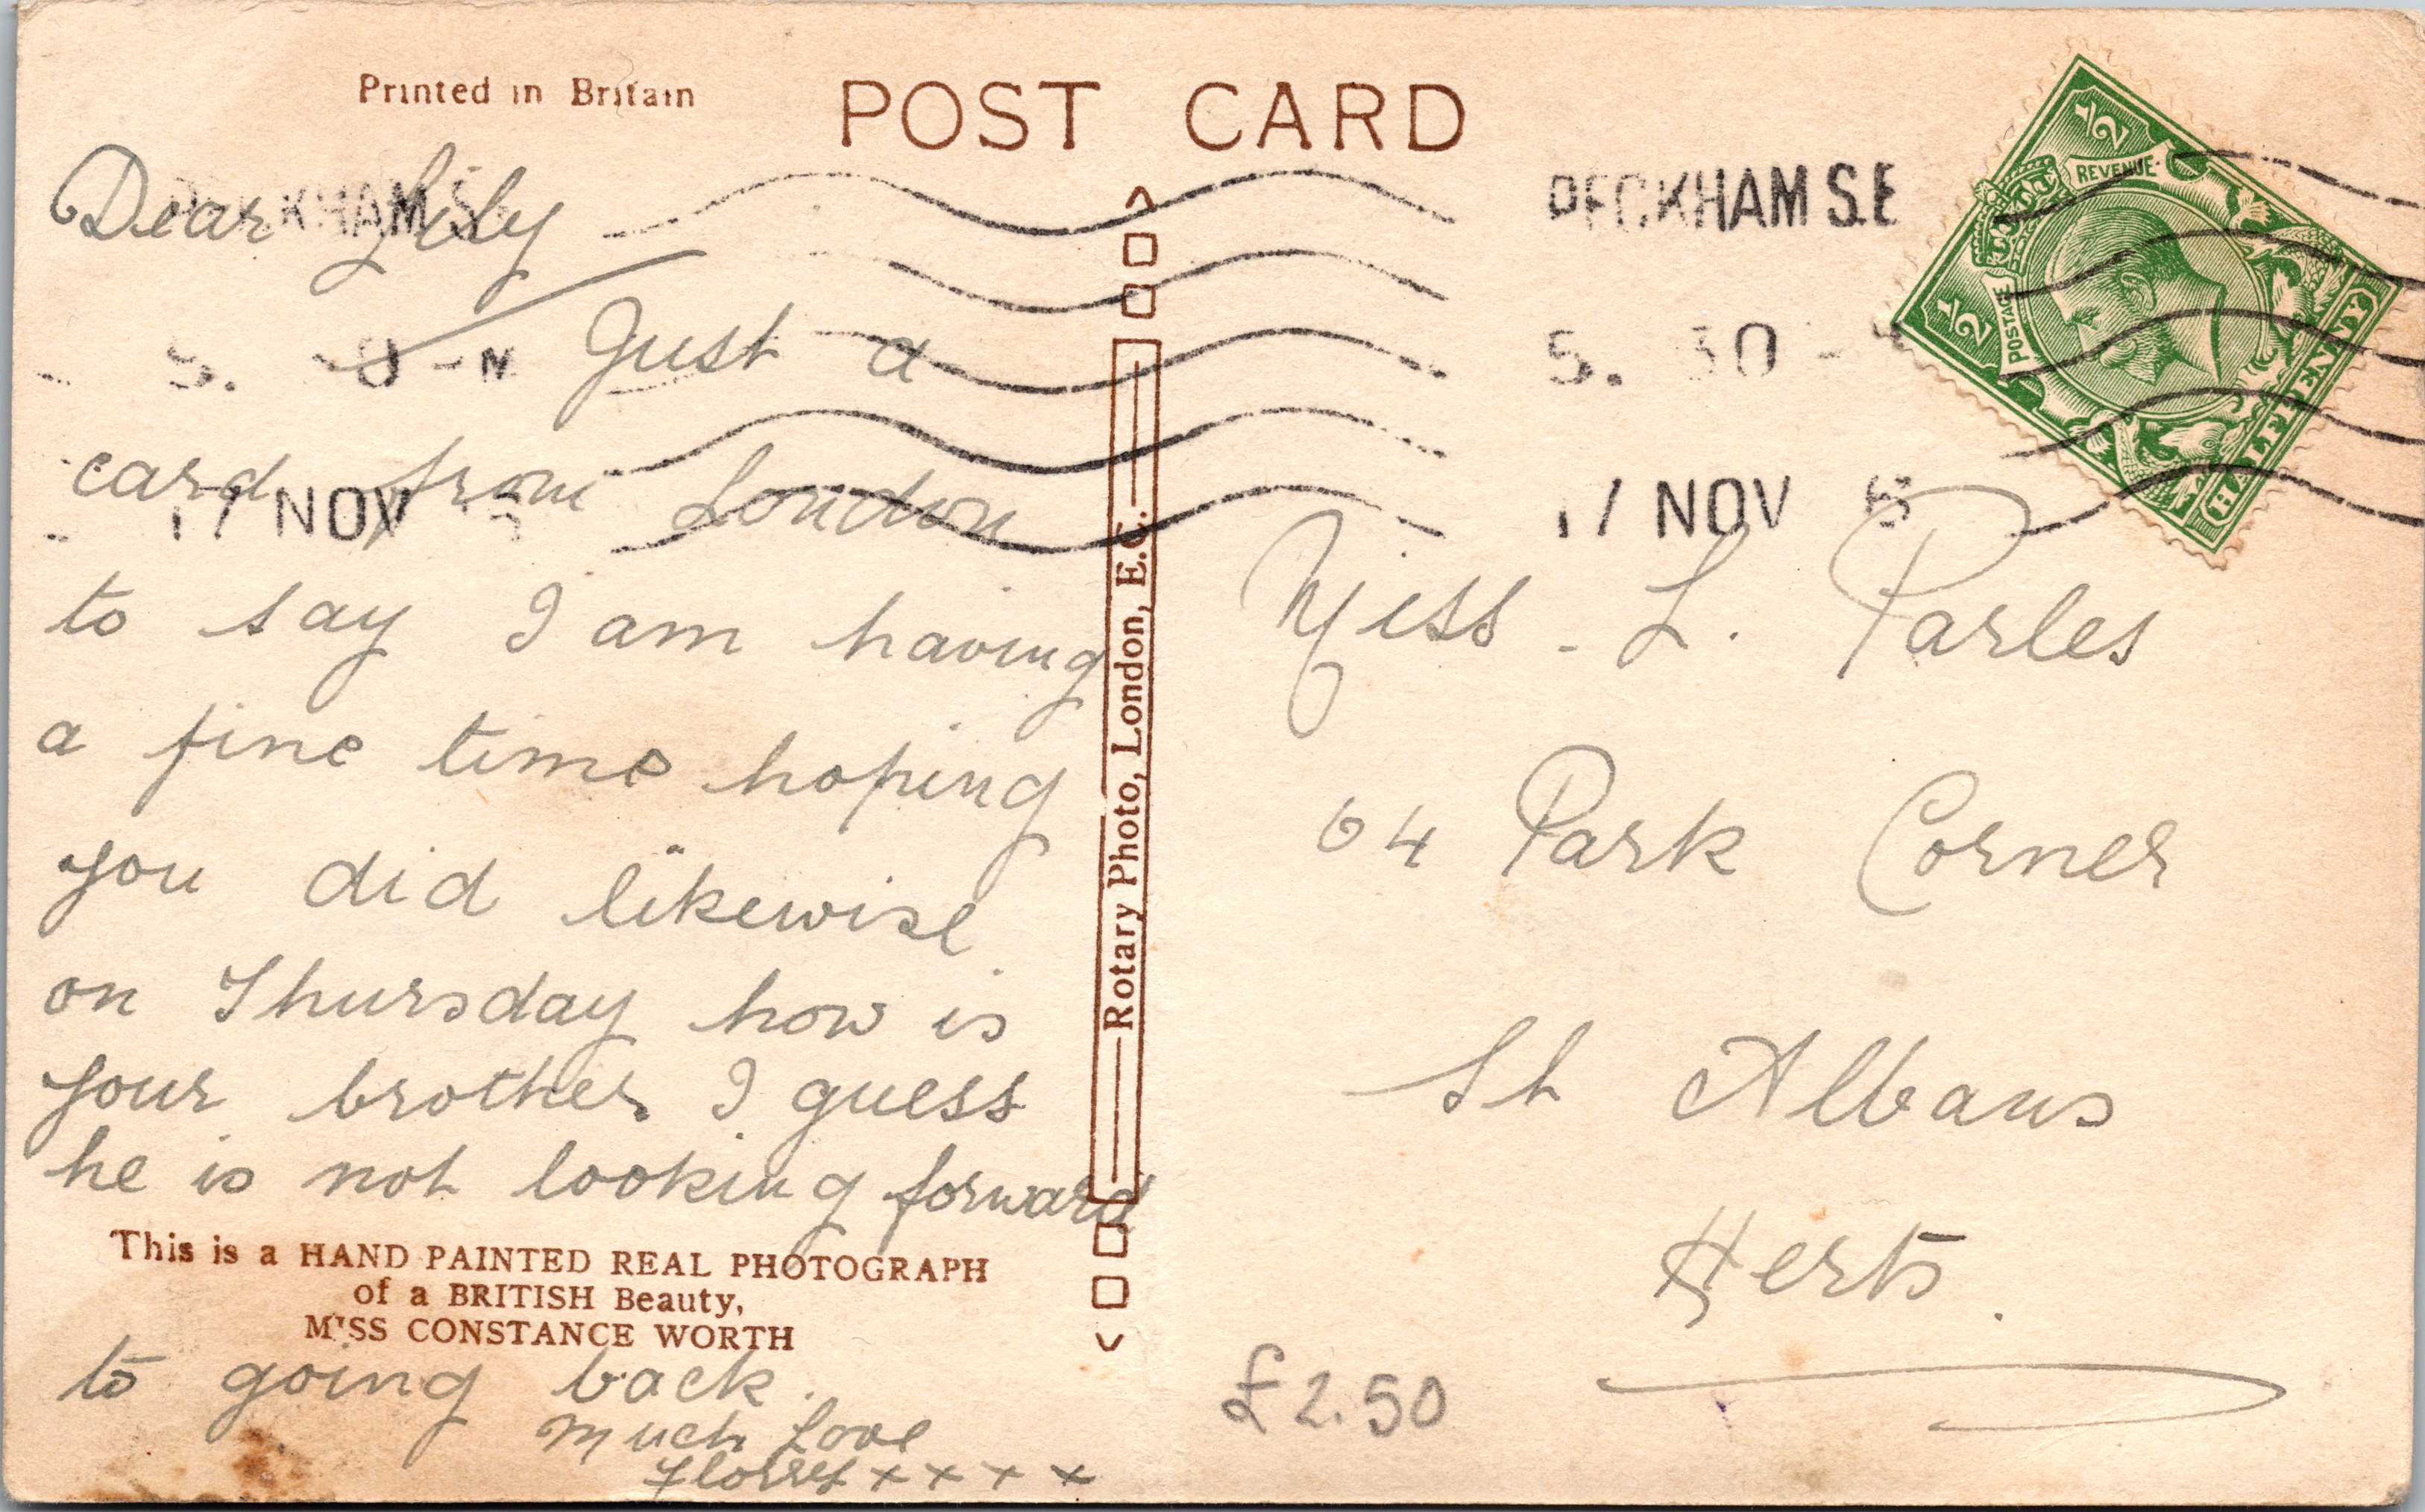 Printed in Britain
POST CARD
PECKHAM S.E
5. 30 -
17 NOV
REVENUE
POSTAGE
1/2
1/2
HALFPENNY
Dear Lily
Just a
card from London
to say I am having
a fine time hoping
you did likewise
on Thursday how is
your brother I guess
he is not looking forward
This is a HAND PAINTED REAL PHOTOGRAPH
of a BRITISH Beauty,
MISS CONSTANCE WORTH
to going back.
Much Love
x x x x
Rotary Photo, London, E.C.
Miss. L. Parles
64 Park Corner
St Albans
Herts.
£2.50